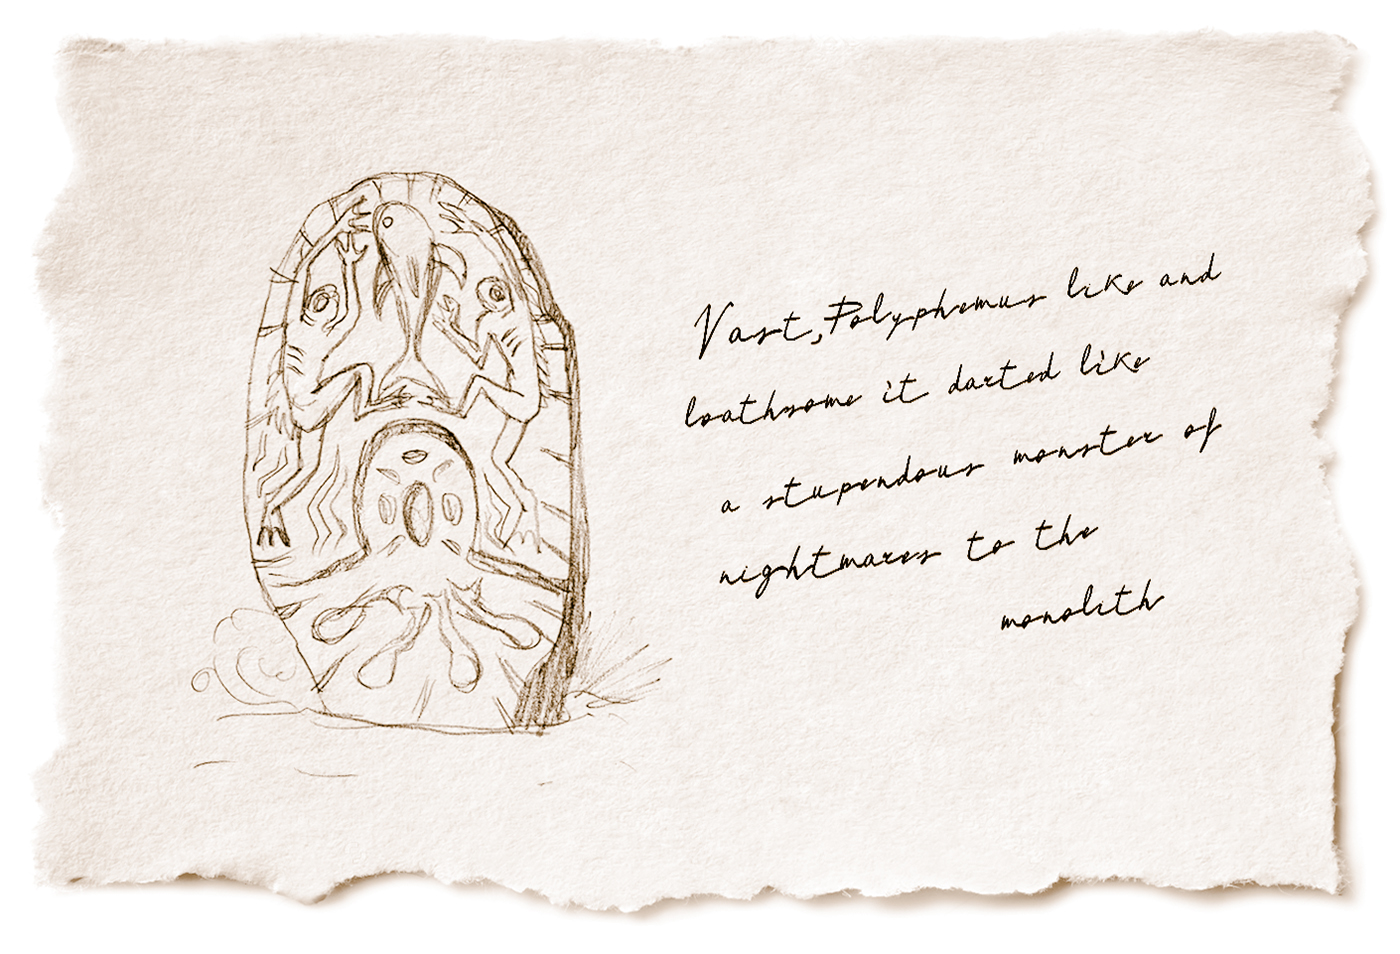 Vast,Polyphemus like and
loathsome it darted like
a stupendous monster of
nightmares to the
monolith